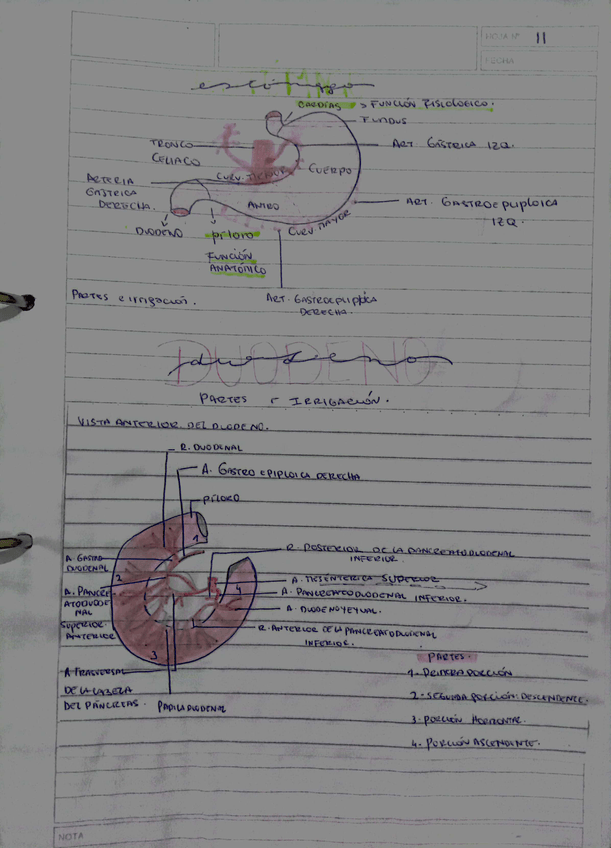 HOJA Nº 11
FECHA
estómago
CARDIAS → FUNCIÓN FISIOLOGICO.
FUNDUS
TRONCO
CELIACO
ART. GÁSTRICA IZQ.
CURV. MENOR
CUERPO
ARTERIA
GÁSTRICA
DERECHA.
ANTRO
ART. GASTROEPIPLOICA
IZQ.
CURV. MAYOR
DUODENO
PILORO
FUNCIÓN
ANATÓMICO
PARTES e irrigación.
ART. GASTROEPIPLOICA
DERECHA.
DUODENO
duodeno
PARTES E IRRIGACIÓN.
VISTA ANTERIOR DEL DUODENO.
R. DUODENAL
A. GASTRO EPIPLOICA DERECHA
PILORO
1
A. GASTRO
DUODENAL
R. POSTERIOR DE LA PANCREATODUODENAL
INFERIOR
2
A. MESENTERICA SUPERIOR
A. PANCRE
ATODUODE
NAL
SUPERIOR
ANTERIOR
4
A. PANCREATODUODENAL INFERIOR.
A. DUODENOYEYUAL
R. ANTERIOR DE LA PANCREATODUODENAL
INFERIOR.
3
A TRASVERSAL
DE LA CABEZA
DEL PÁNCREAS.
PAPILA DUODENAL
PARTES.
1- PRIMERA PORCIÓN
2- SEGUNDA PORCIÓN: DESCENDENTE.
3- PORCIÓN HORIZONTAL.
4- PORCIÓN ASCENDENTE.
NOTA